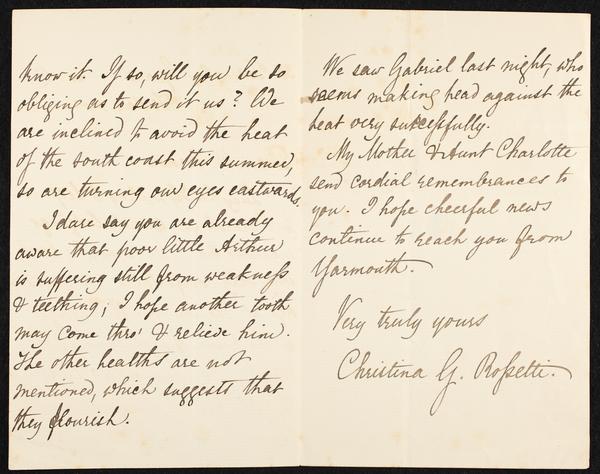 know it. If so, will you be so
obliging as to send it us? We
are inclined to avoid the heat
of the south coast this summer,
so are turning our eyes eastwards.
I dare say you are already
aware that poor little Arthur
is suffering still from weakness
& teething; I hope another tooth
may come thro' & relieve him.
The other healths are not
mentioned, which suggests that
they flourish.
We saw Gabriel last night, who
seems making head against the
heat very successfully.
My Mother & Aunt Charlotte
send cordial remembrances to
you. I hope cheerful news
continue to reach you from
Yarmouth.
Very truly yours
Christina G. Rossetti.